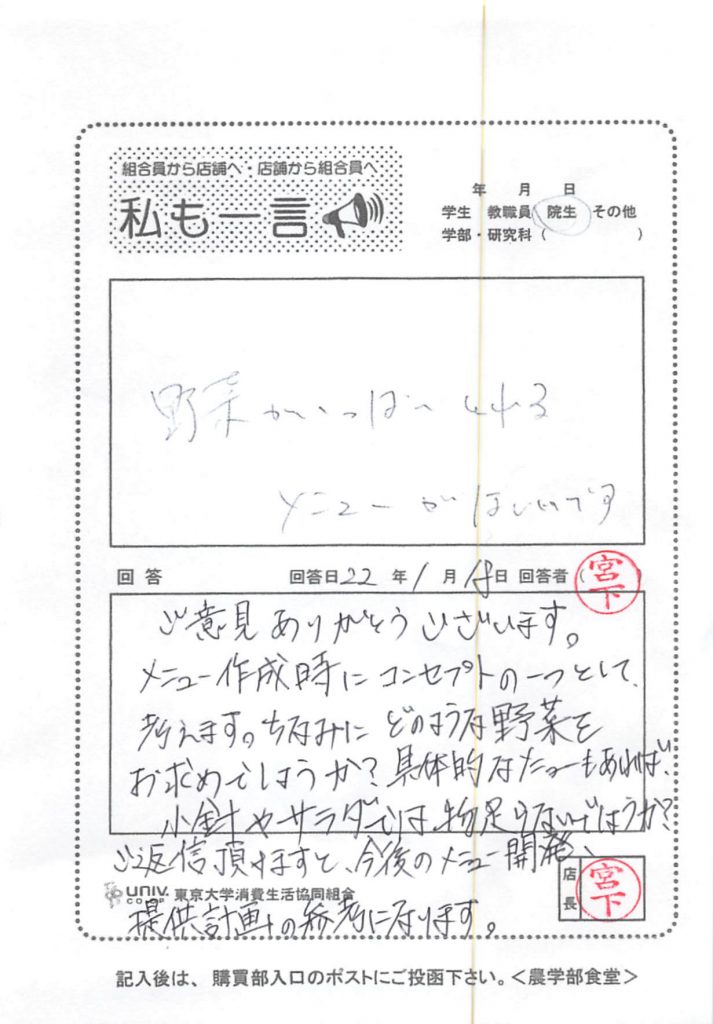 組合員から店舗へ・店舗から組合員へ
私も一言
年 月 日
学生 教職員 院生 その他
学部・研究科( )
野菜がいっぱい とれる
メニューがほしいです
回答 回答日22年1月18日 回答者(宮下)
ご意見ありがとうございます。
メニュー作成時にコンセプトの一つとして、
考えます。ちなみにどのような野菜を
お求めでしょうか?具体的なメニューもあれば、
小鉢やサラダでは物足りないでしょうか?
ご返信頂けますと、今後のメニュー開発、
店長 宮下
UNIV. CO-OP 東京大学消費生活協同組合
提供計画の参考になります。
記入後は、購買部入口のポストにご投函下さい。<農学部食堂>